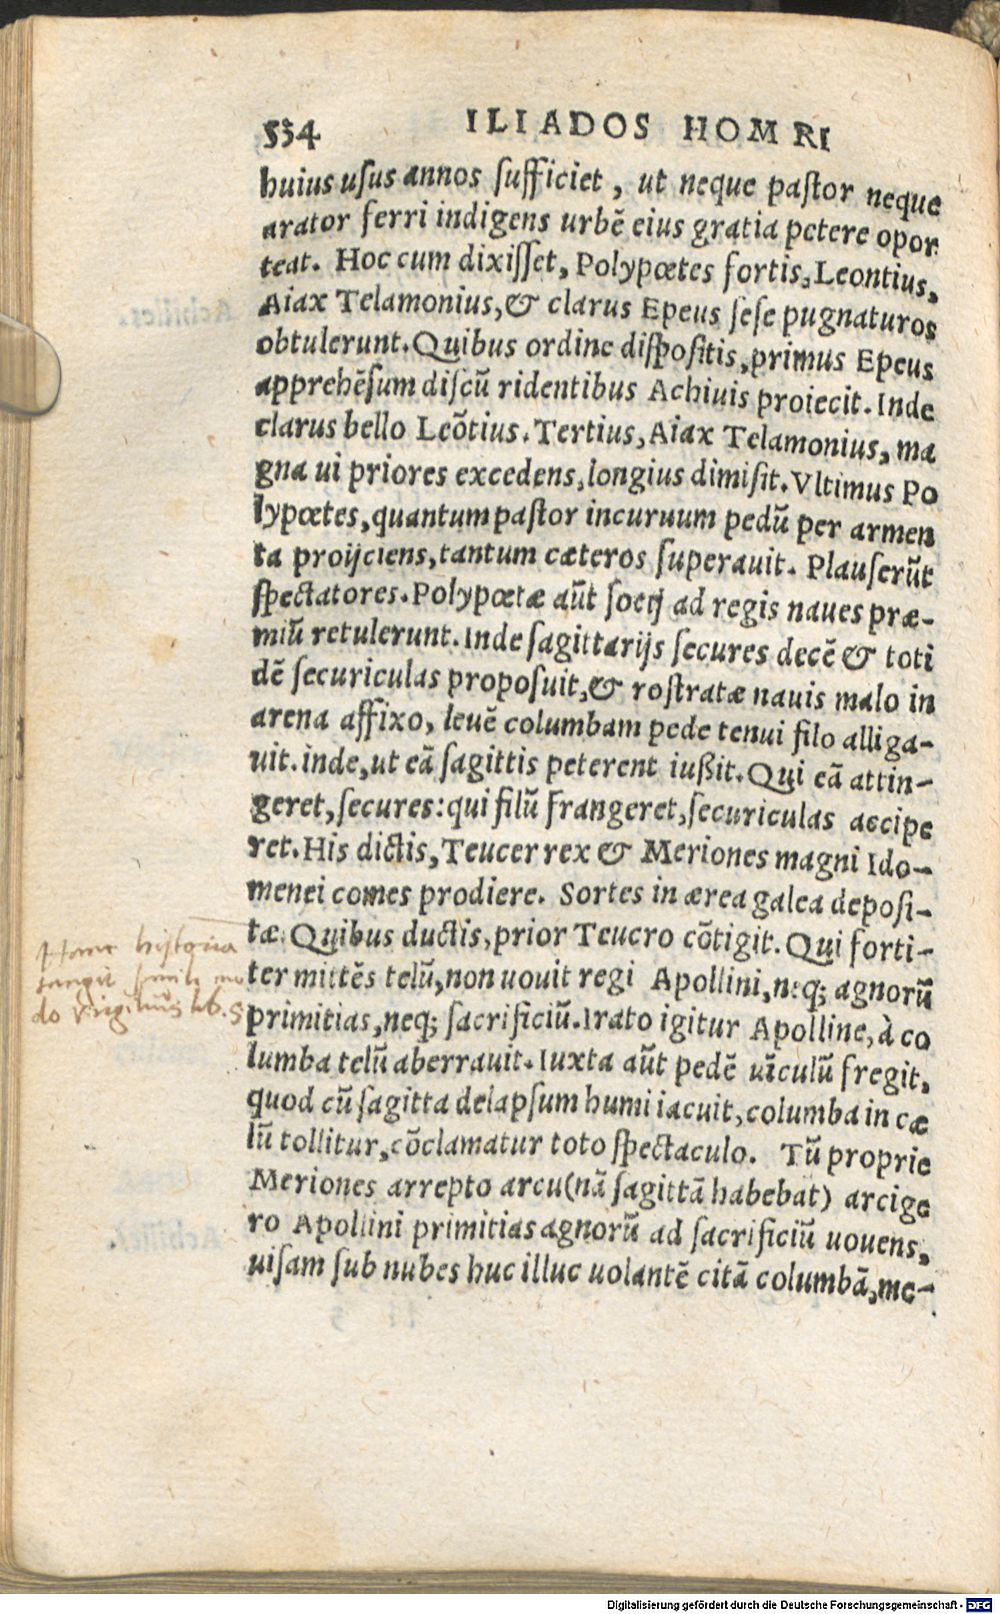 554 ILIADOS HOM RI
huius usus annos sufficiet, ut neque pastor neque
arator ferri indigens urbē eius gratia petere opor
teat. Hoc cum dixisset, Polypœtes fortis, Leontius,
Aiax Telamonius, & clarus Epeus sese pugnaturos
obtulerunt. Quibus ordine dispositis, primus Epeus
apprehēsum discū ridentibus Achiuis proiecit. Inde
clarus bello Leōtius. Tertius, Aiax Telamonius, ma
gna ui priores excedens, longius dimisit. Vltimus Po
lypœtes, quantum pastor incuruum pedū per armen
ta proijciens, tantum cæteros superauit. Plauserūt
spectatores. Polypœtæ aūt socij ad regis naues præ-
miū retulerunt. Inde sagittarijs secures decē & toti
dē securiculas proposuit, & rostratæ nauis malo in
arena affixo, leuē columbam pede tenui filo alliga-
uit. inde, ut eā sagittis peterent iußit. Qui eā attin-
geret, secures: qui filū frangeret, securiculas accipe
ret. His dictis, Teucer rex & Meriones magni Ido-
menei comes prodiere. Sortes in ærea galea deposi-
tæ. Quibus ductis, prior Teucro cōtigit. Qui forti-
ter mittēs telū, non uouit regi Apollini, neq; agnorū
primitias, neq; sacrificiū. Irato igitur Apolline, à co
lumba telū aberrauit. Iuxta aūt pedē uīculū fregit,
quod cū sagitta delapsum humi iacuit, columba in cæ
lū tollitur, cōclamatur toto spectaculo. Tū proprie
Meriones arrepto arcu (nā sagittā habebat) arcige
ro Apollini primitias agnorū ad sacrificiū uouens,
uisam sub nubes huc illuc uolantē citā columbā, me-
Hanc historia
tangit simili mo
do Virgilius lib. 5
Digitalisierung gefördert durch die Deutsche Forschungsgemeinschaft - DFG